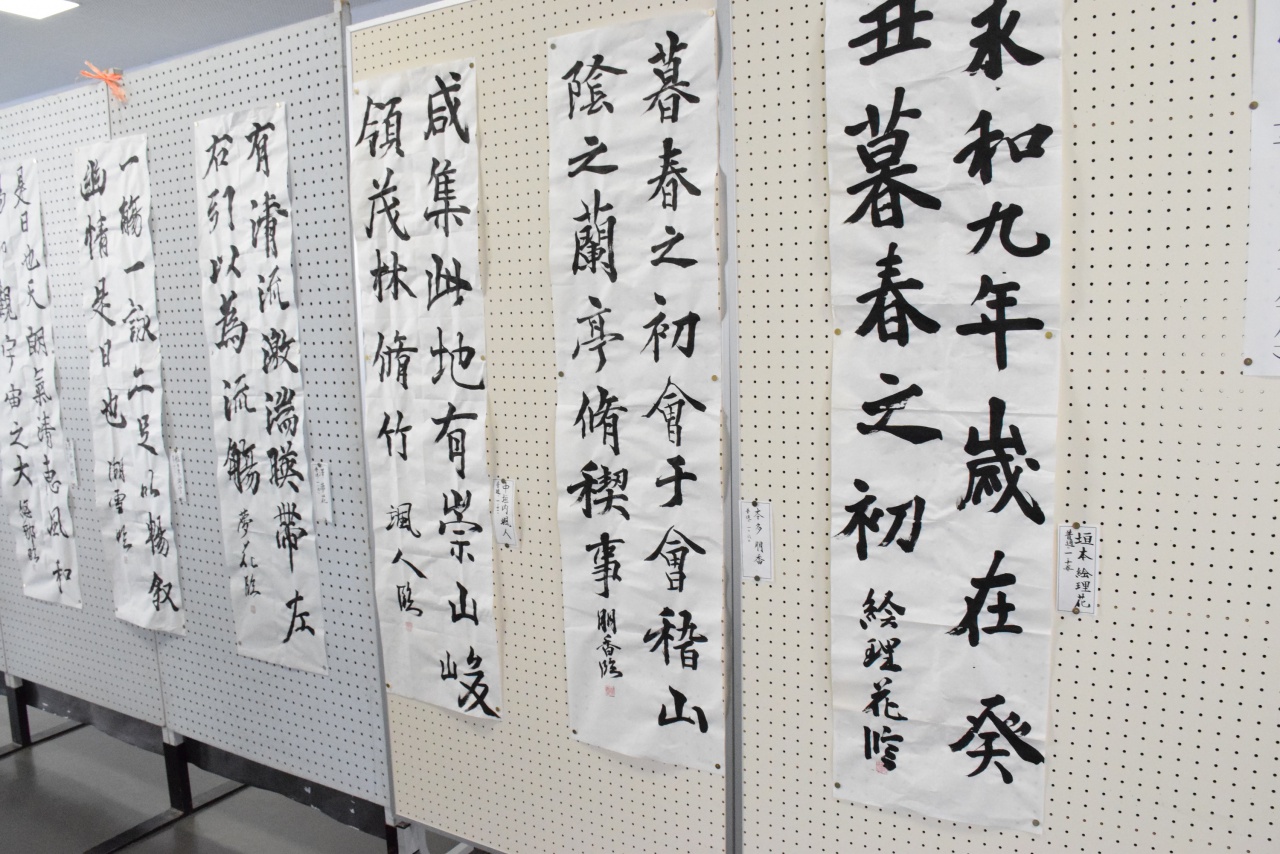 永和九年歳在癸
丑暮春之初 絵理花臨
垣本 絵理花
暮春之初會于會稽山
陰之蘭亭脩稧事 朋香臨
本多 朋香
咸集此地有崇山峻
領茂林脩竹 颯人臨
中垣内 颯人
有清流激湍暎帶左
右引以為流觴 夢花臨
一觴一詠二足以暢叙
幽情是日也
是日也天朗氣清恵風和
觀宇宙之大